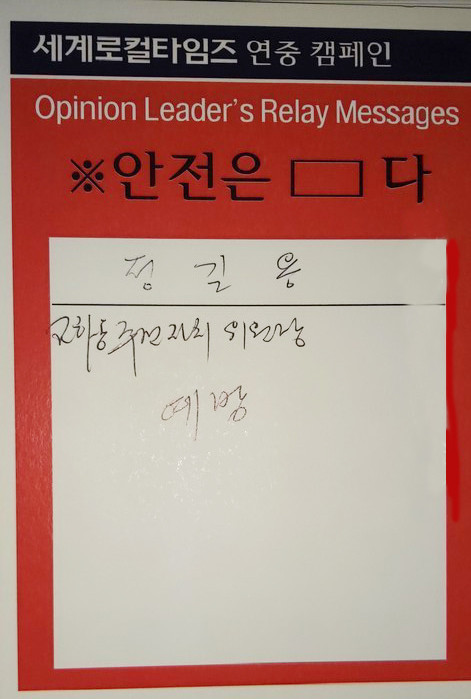 세계로컬타임즈 연중 캠페인
Opinion Leader's Relay Messages
※안전은 □ 다
정 길 용
교하동 주민자치 위원장
예방